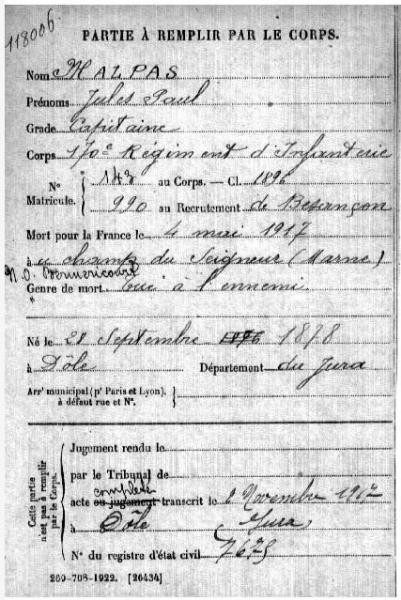 118006
PARTIE À REMPLIR PAR LE CORPS.
Nom MALPAS
Prénoms Jules Paul
Grade Capitaine
Corps 170e Régiment d'Infanterie
N° Matricule. 143 au Corps. — Cl. 1896
990 au Recrutement de Besançon
Mort pour la France le 4 mai 1917
à u champ du Seigneur (Marne)
N.O. Berméricourt
Genre de mort tué à l'ennemi
Né le 28 Septembre 1878
à Dôle Département du Jura
Arrt municipal (pr Paris et Lyon), à défaut rue et N°.
Cette partie n'est pas à remplir par le Corps.
Jugement rendu le
par le Tribunal de
complété
acte ou jugement transcrit le 2 Novembre 1917
à Dôle Jura
N° du registre d'état civil 7675
269-708-1922. [26434]